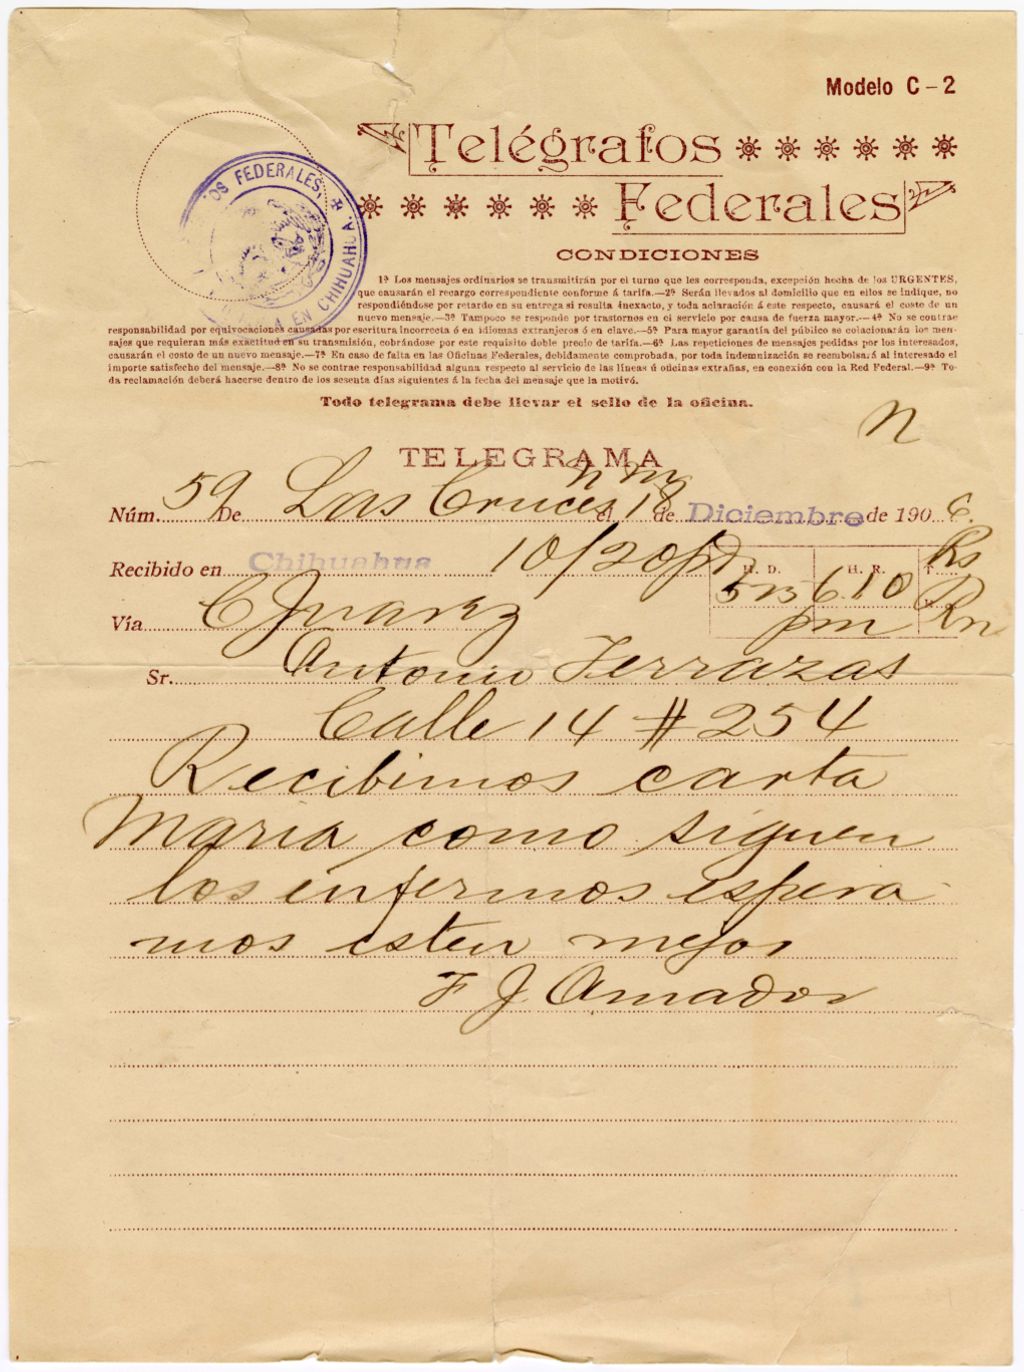 Modelo C-2
Telégrafos
Federales
CONDICIONES
1ª Los mensajes ordinarios se transmitirán por el turno que les corresponda, excepción hecha de los URGENTES,
que causarán el recargo correspondiente conforme á tarifa.—2ª Serán llevados al domicilio que en ellos se indique, no
respondiéndose por retardo en su entrega si resulta inexacto, y toda aclaración á este respecto, causará el costo de un
nuevo mensaje.—3ª Tampoco se responde por trastornos en el servicio por causa de fuerza mayor.—4ª No se contrae
responsabilidad por equivocaciones causadas por escritura incorrecta ó en idiomas extranjeros ó en clave.—5ª Para mayor garantía del público se colacionarán los men-
sajes que requieran más exactitud en su transmisión, cobrándose por este requisito doble precio de tarifa.—6ª Las repeticiones de mensajes pedidas por los interesados,
causarán el costo de un nuevo mensaje.—7ª En caso de falta en las Oficinas Federales, debidamente comprobada, por toda indemnización se reembolsará al interesado el
importe satisfecho del mensaje.—8ª No se contrae responsabilidad alguna respecto al servicio de las líneas ú oficinas extrañas, en conexión con la Red Federal.—9ª To-
da reclamación deberá hacerse dentro de los sesenta días siguientes á la fecha del mensaje que la motivó.
Todo telegrama debe llevar el sello de la oficina.
OS FEDERALES, EN CHIHUAHUA
N
TELEGRAMA
Núm. 59 De Las Cruces N M el 18 de Diciembre de 1906.
Recibido en Chihuahua 10/20pd H. D. 525 H. R. 610 pm T. Rs R. Rn
Vía C Juarez
Sr. Antonio Terrazas
Calle 14 # 254
Recibimos carta
Maria como siguen
los enfermos espera
mos esten mejor
F J. Amador